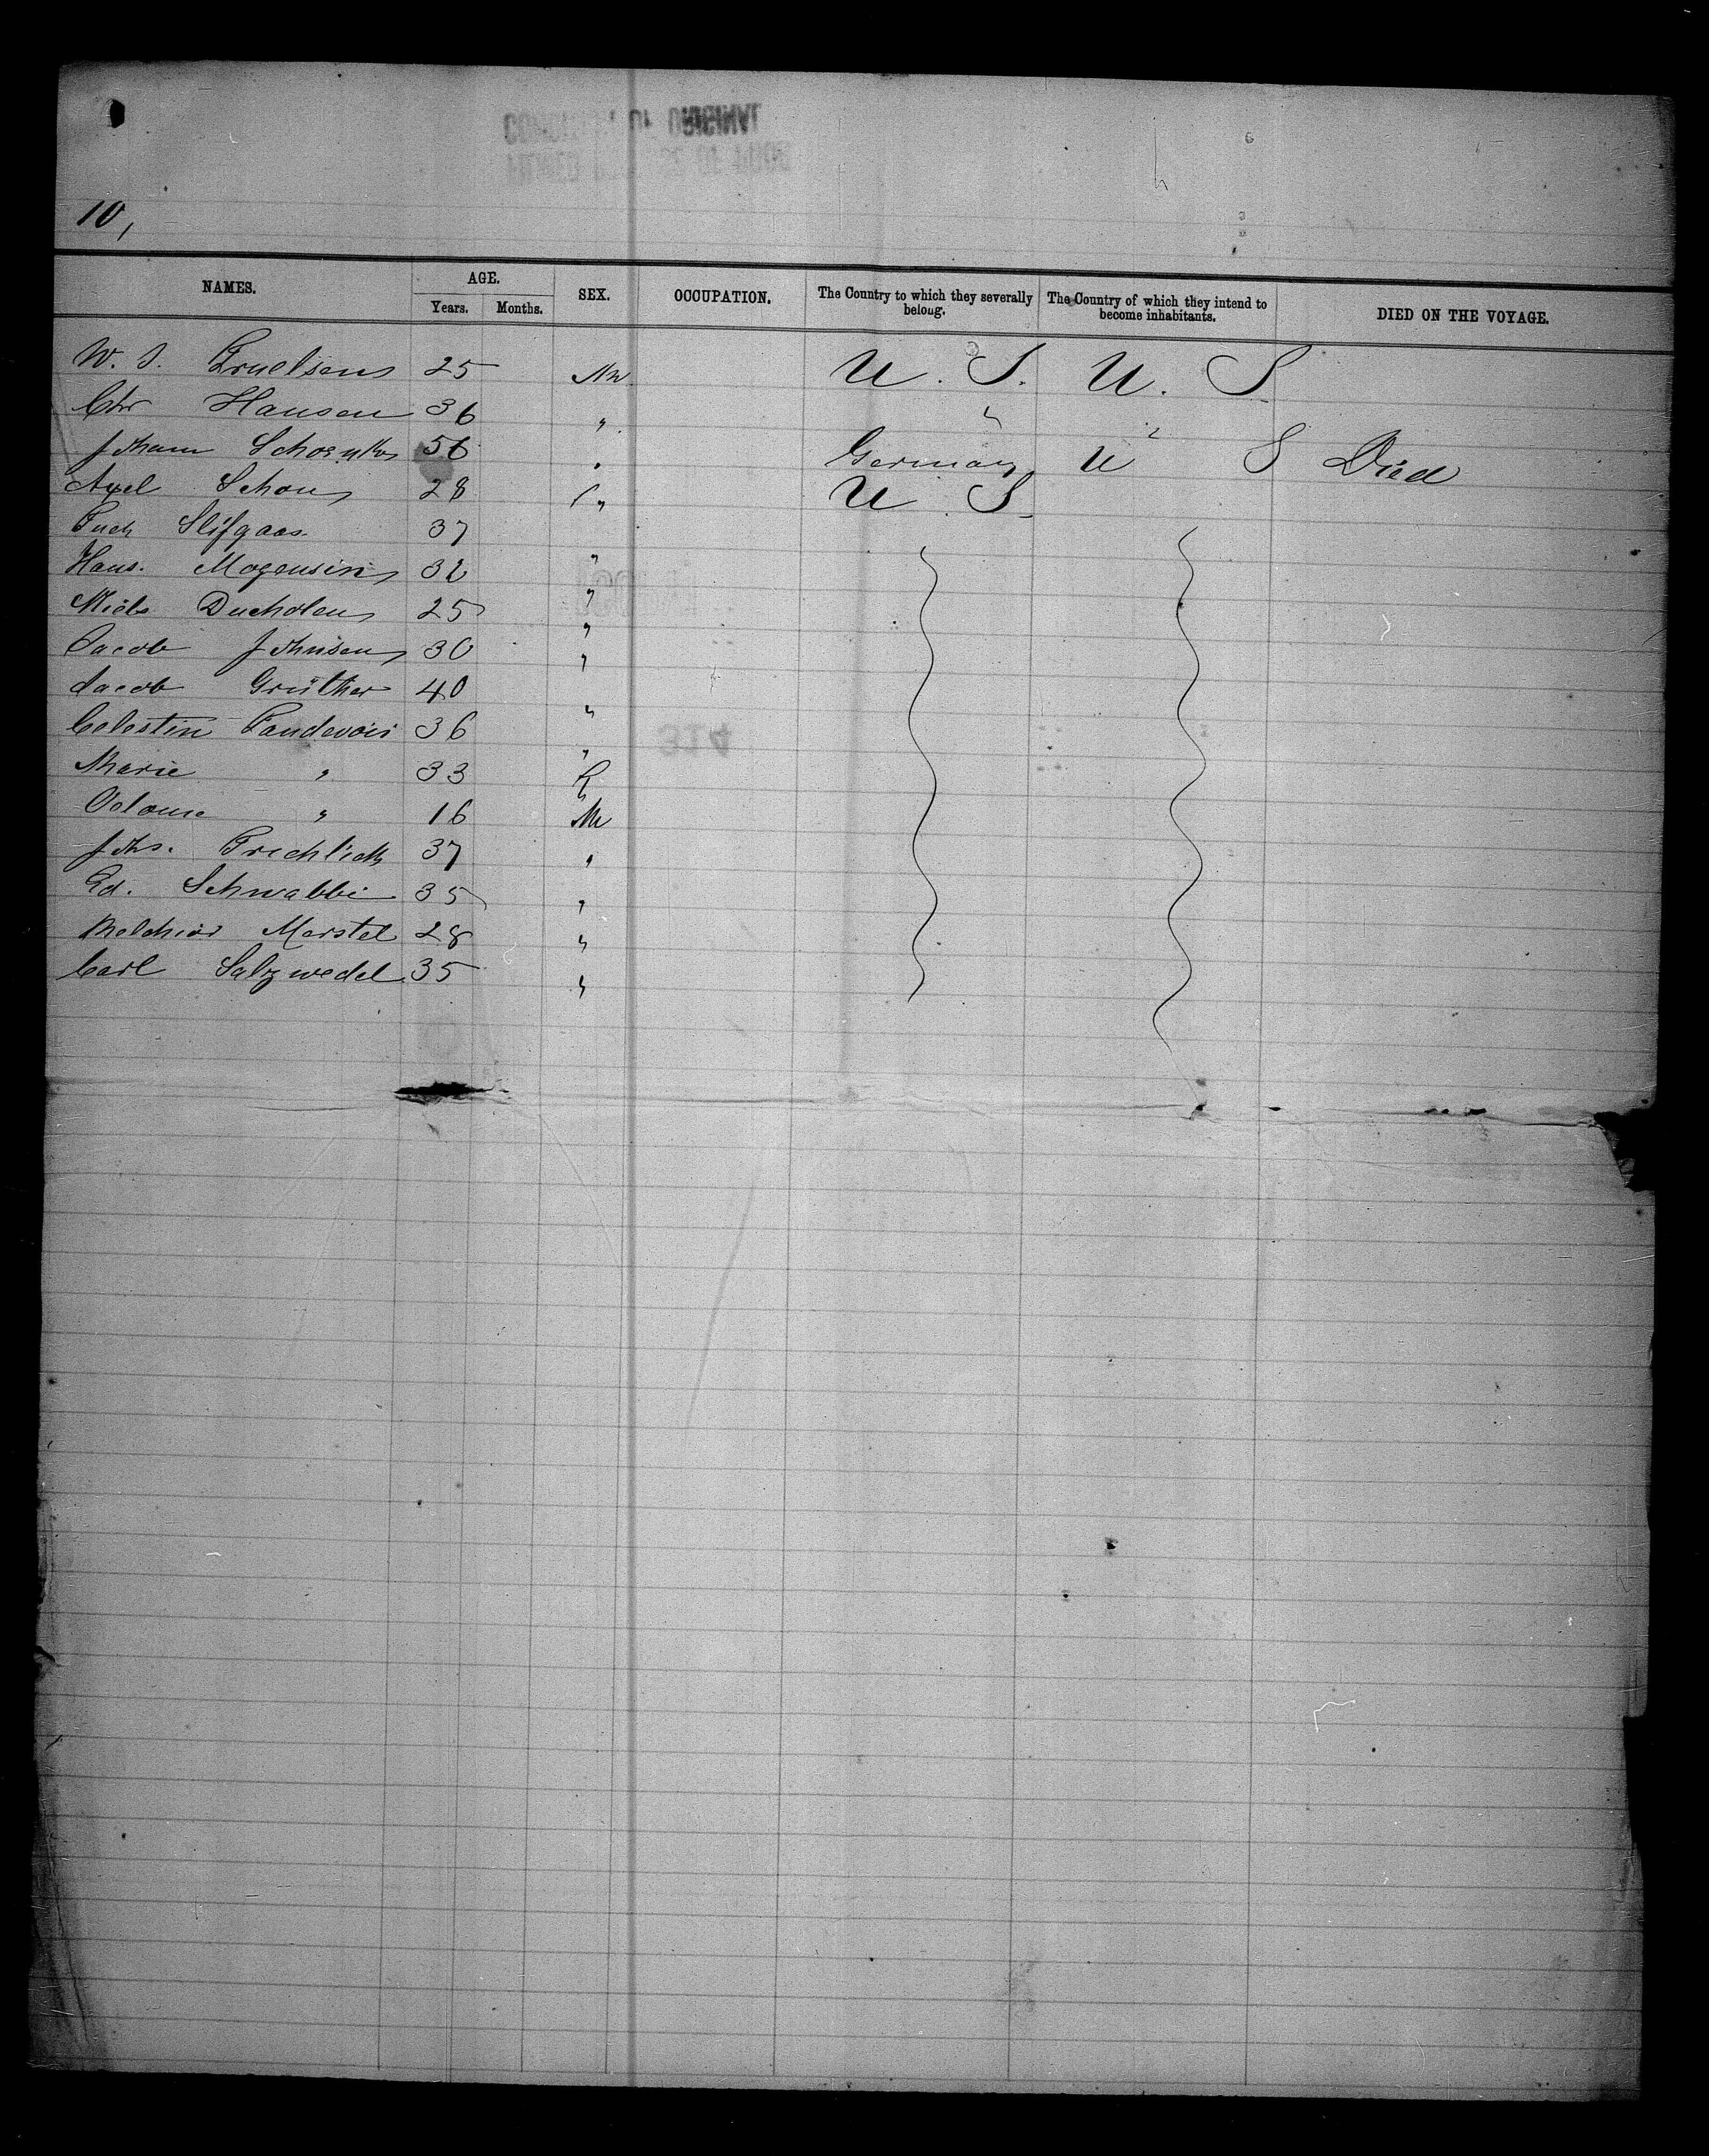 10,
NAMES. AGE. SEX. OCCUPATION. The Country to which they severally belong. The Country of which they intend to become inhabitants. DIED ON THE VOYAGE.
Years. Months.
W. J. Truelsen 25 M U. S. U. S
Chr Hansen 36 " "
Johann 56 " Germany U S Died
Axel Schou 28 " U. S.
37
Hans. Mogensin 32 "
Niels Ducholen 25 "
Jacob Johnsen 30 "
Jacob Grüther 40 "
Celestin 36 "
Marie " 33 F
" 16 M
Johs. 37 "
Ed. Schwabbi 35 "
Melchior Marstel 28 "
Carl Salzwedel 35 "
314